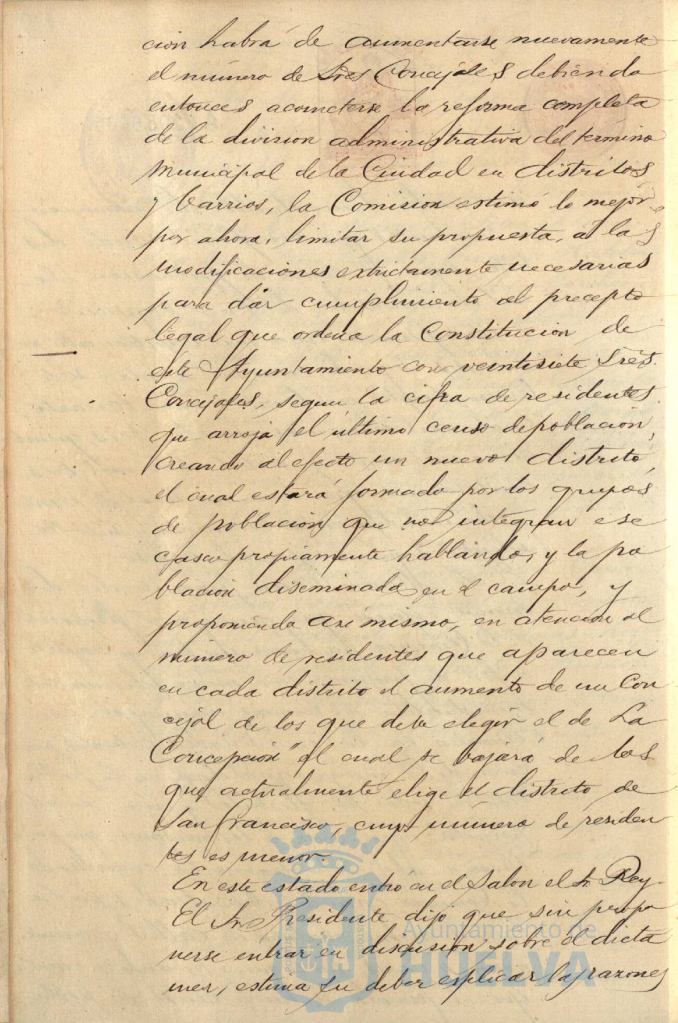 cion habrá de aumentarse nuevamente
el número de tres Concejales debiendo
entonces acometerse la reforma completa
de la division administrativa del termino
Municipal de la Ciudad en distritos
y barrios, la Comision estimó lo mejor
por ahora, limitar su propuesta, a las
modificaciones estrictamente necesarias
para dar cumplimiento al precepto
legal que ordena la Constitucion de
este Ayuntamiento con veintisiete Sres.
Concejales, segun la cifra de residentes
que arroja el último censo de poblacion,
creando al efecto un nuevo distrito,
el cual estará formado por los grupos
de poblacion que no integran ese
casco propiamente hablando, y la po
blacion diseminada en el campo, y
proponiendo asi mismo, en atencion al
número de residentes que aparecen
en cada distrito el aumento de un Con
cejal de los que debe elegir el de La
Concepcion" el cual se bajará de los
que actualmente elige el distrito de
San Francisco, cuyo número de residen
tes es menor.
En este estado entró en el Salon el Sr. Rey.
El Sr. Presidente dijo que sin propo
nerse entrar en discusion sobre el dicta
men, estima su deber esplicar las razones
Ayuntamiento de
HUELVA